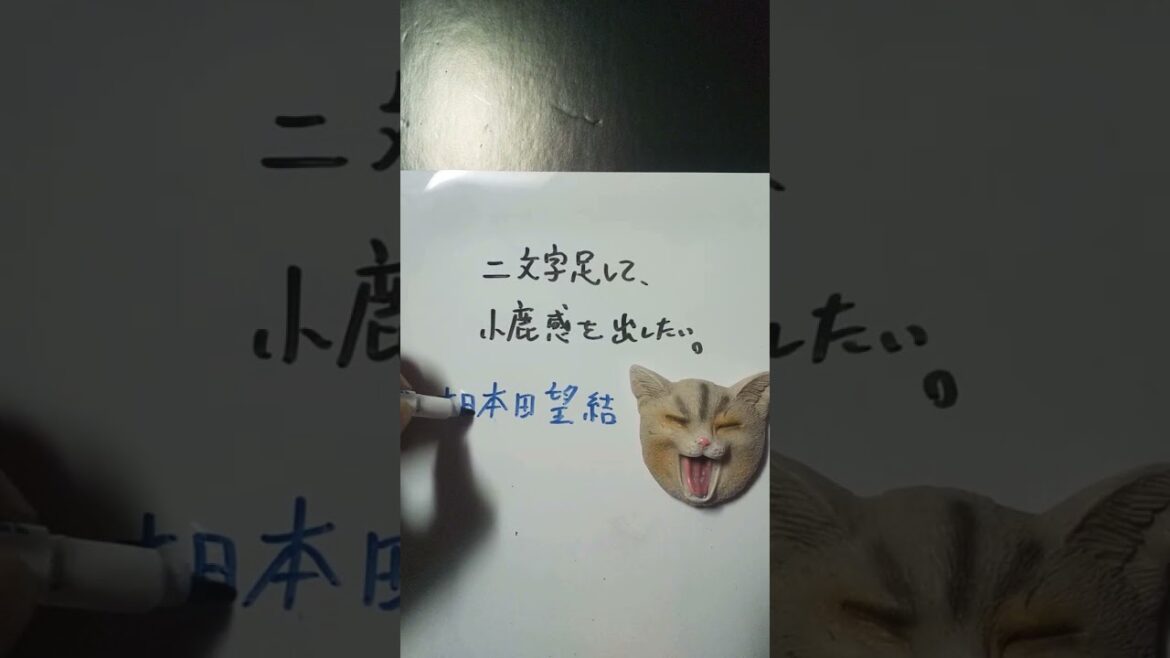 二文字足して、
小鹿感を出したい。
本田望結